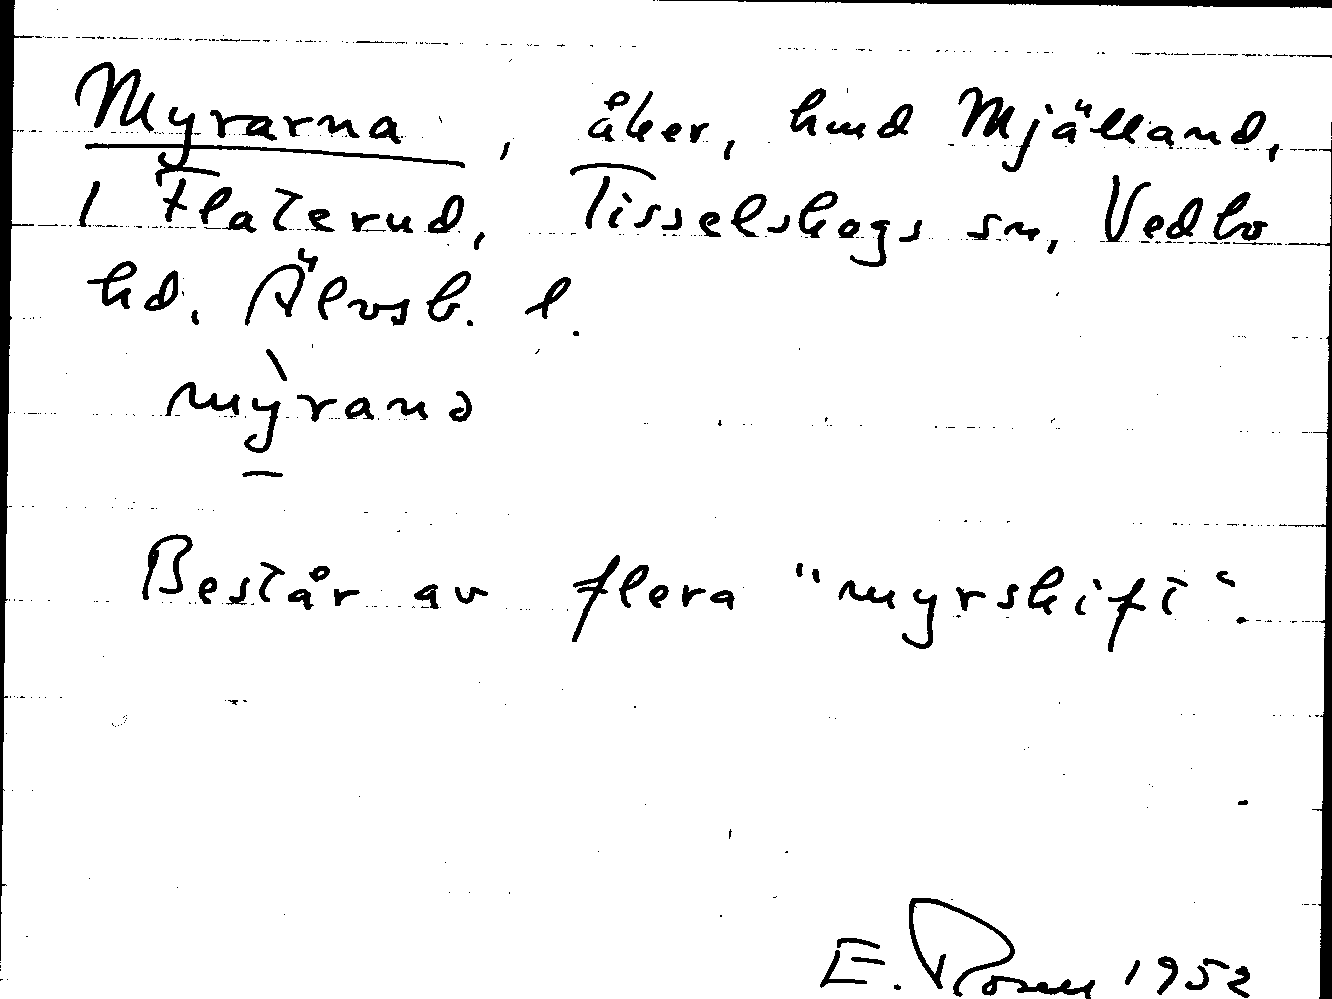 Myrarna, åker, hmd Mjälland,
1 Flaterud, Tisselskogs sn, Vedbo
hd. Älvsb. l.
mỳrana
Består av flera "myrskift".
E. Rosen 1952